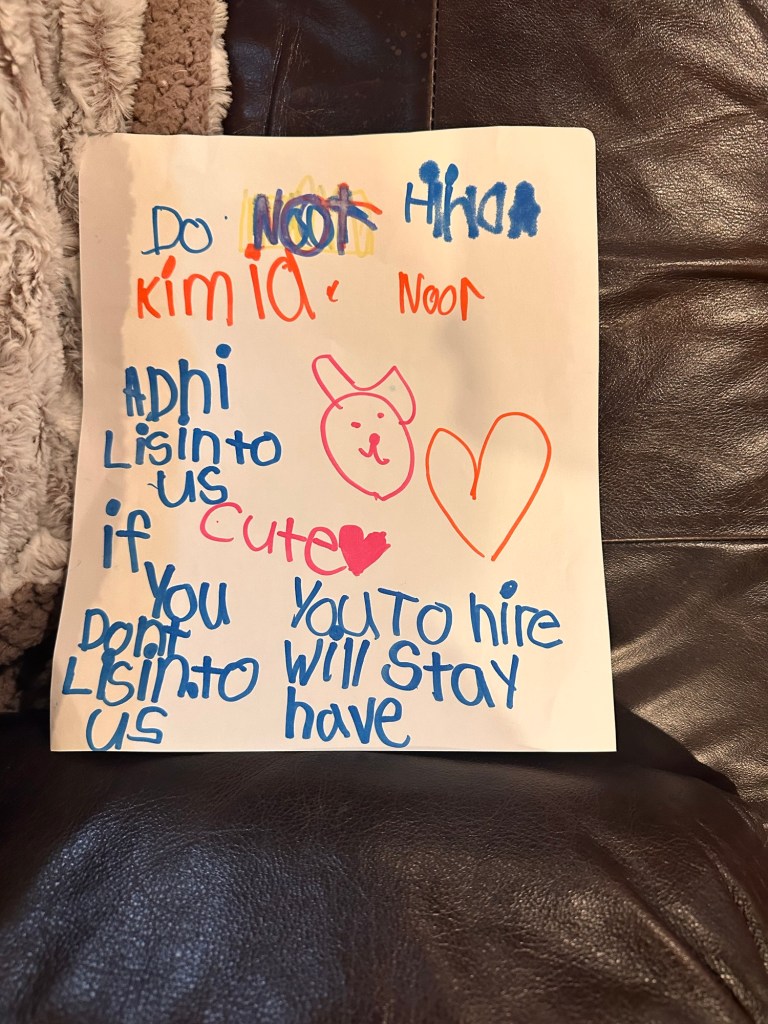 DO Noot
Kimia Noor
ADhi
Lisinto
us
cute
if
You
Dont
Lisinto
us
You To hire
will Stay
have